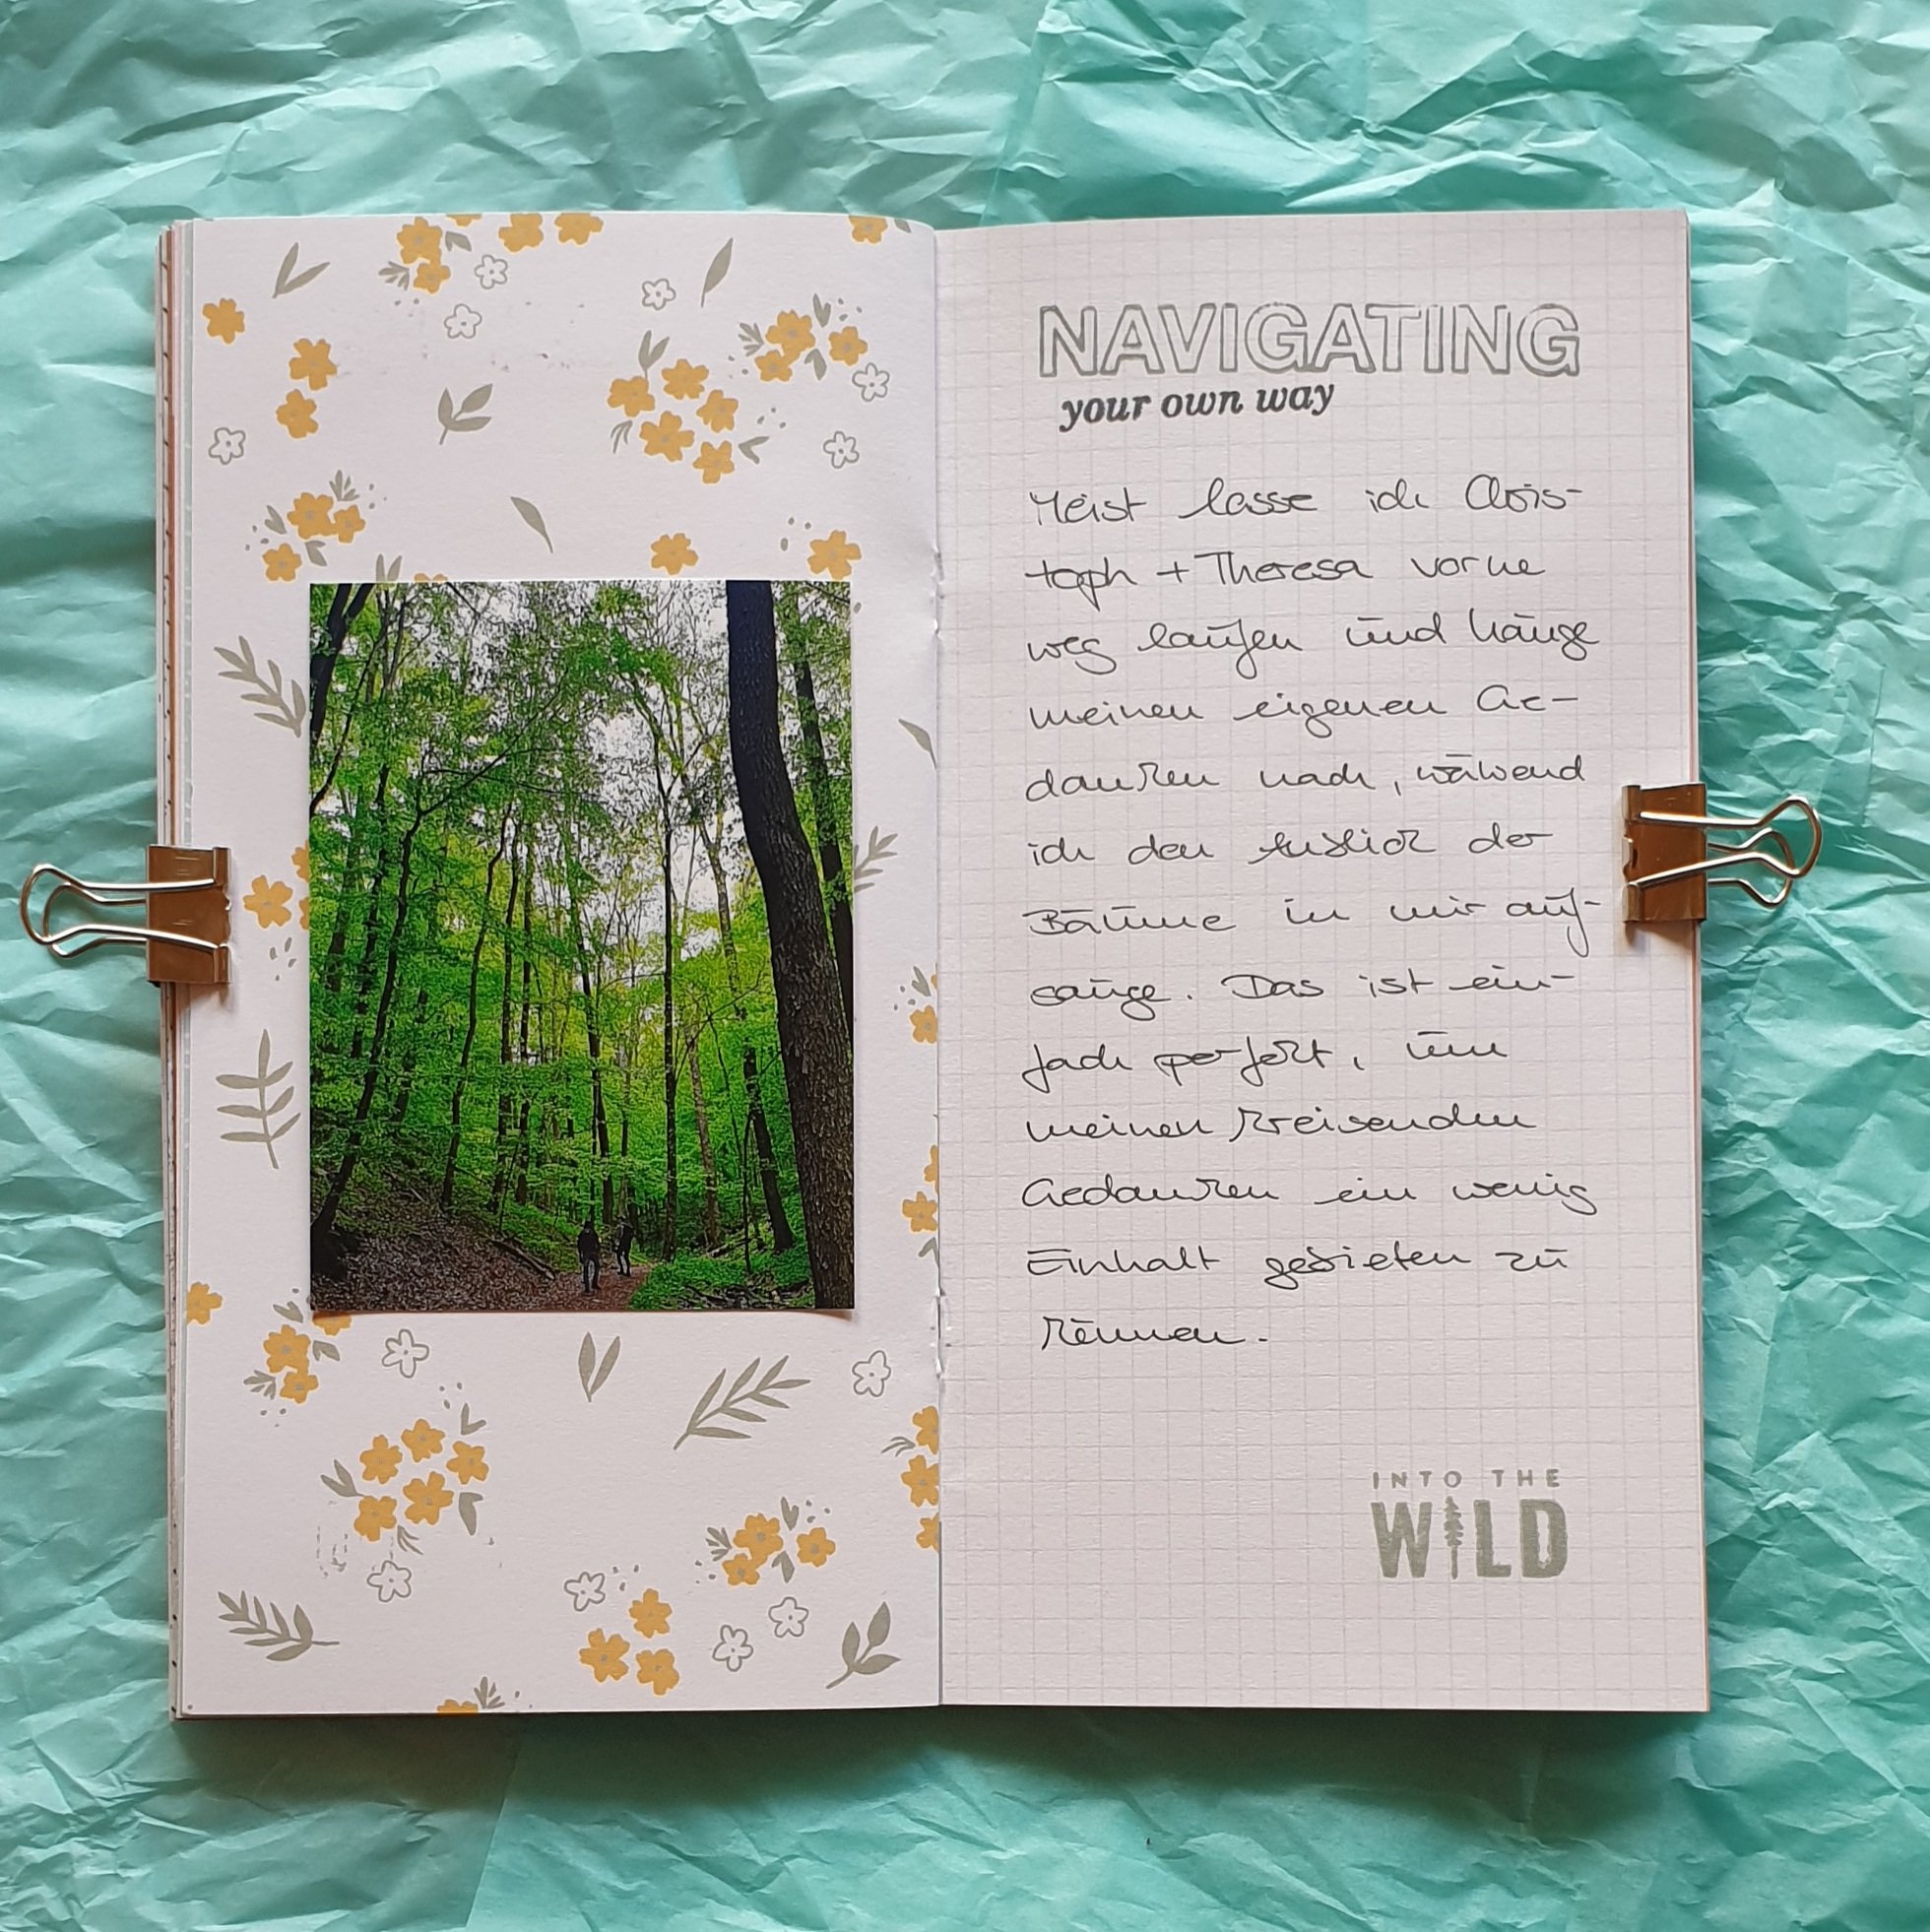 NAVIGATING
your own way
Meist lasse ich Chris-
toph + Theresa vorne
weg laufen und hänge
meinen eigenen Ge-
danken nach, während
ich den Anblick der
Bäume in mir auf-
sauge. Das ist ein-
fach perfekt, um
meinen kreisenden
Gedanken ein wenig
Einhalt gebieten zu
können.
INTO THE
WILD